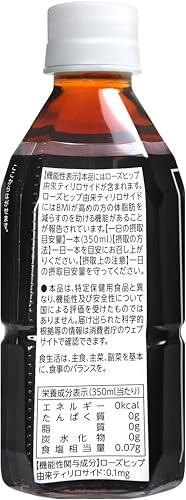 【機能性表示】本品にはローズヒップ
由来ティリロサイドが含まれます。
ローズヒップ由来ティリロサイド
にはBMIが高めの方の体脂肪を
減らすのを助ける機能があること
が報告されています。【一日摂取
目安量】一本(350ml)【摂取の方
法】一日一本を目安にお召し上が
りください。【摂取上の注意】一
日の摂取目安量を守ってください。
●本品は、特定保健用食品と異
なり、機能性及び安全性について
国による評価を受けたものではあ
りません。届け出られた科学的
根拠等の情報は消費者庁のウェブ
サイトで確認できます。
食生活は、主食、主菜、副菜を基本
に、食事のバランスを。
栄養成分表示(350ml当たり)
エネルギー 0kcal
たんぱく質 0g
脂質 0g
炭水化物 0g
食塩相当量 0.07g
【機能性関与成分】ローズヒップ
由来ティリロサイド:0.1mg
ここからはがせます。